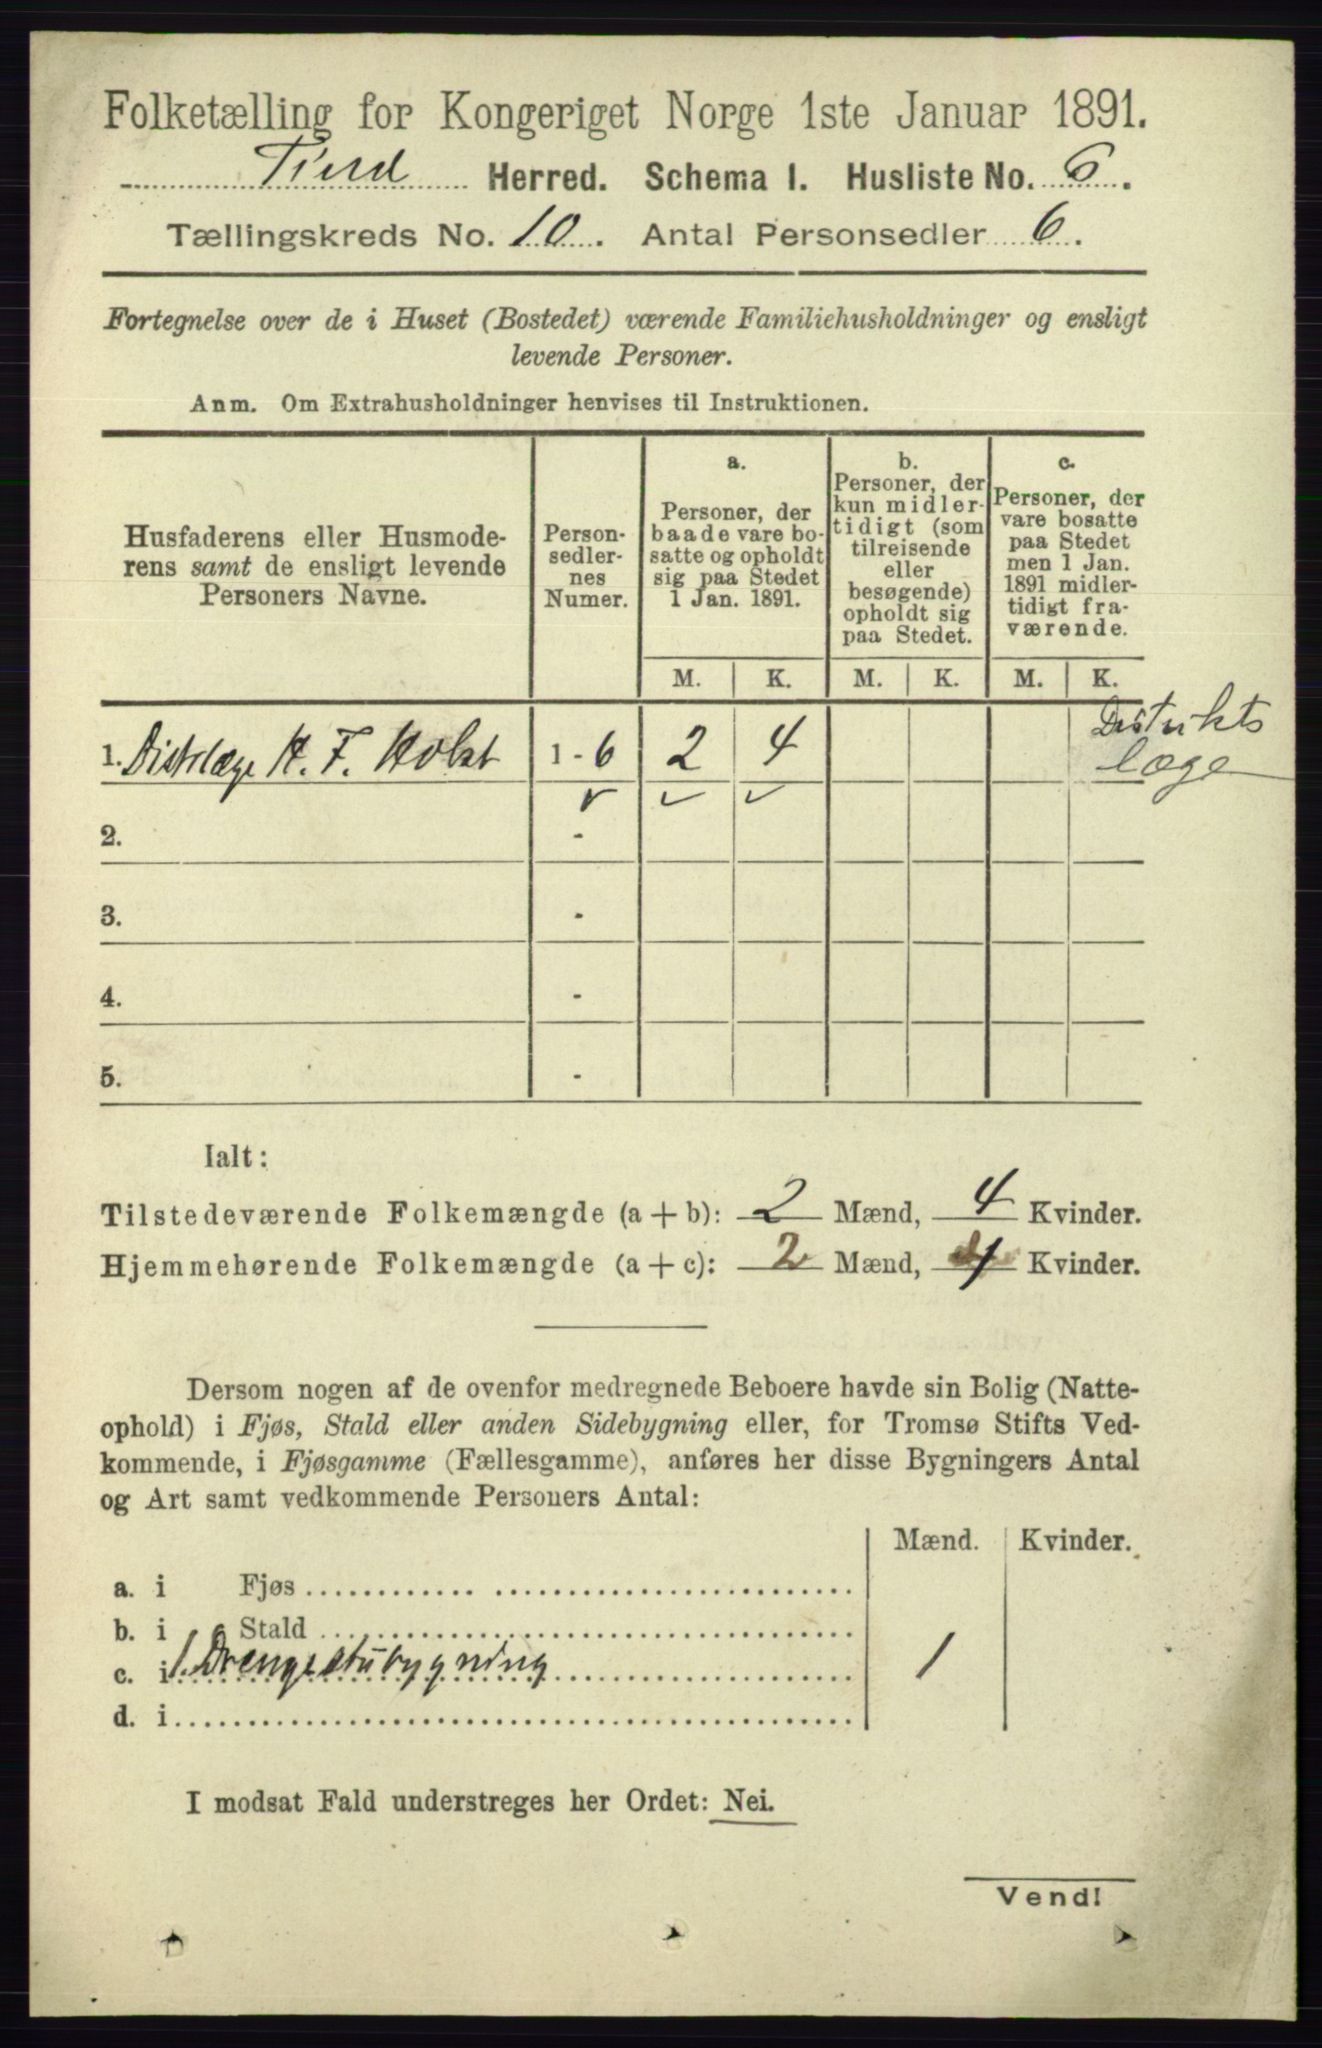 Folketælling for Kongeriget Norge 1ste Januar 1891.
Herred. Schema 1. Husliste No. 6.
Tællingskreds No. 10. Antal Personsedler 6.
Fortegnelse over de i Huset (Bostedet) værende Familiehusholdninger og ensligt
levende Personer.
Anm. Om Extrahusholdninger henvises til Instruktionen.
Husfaderens eller Husmode-
rens samt de ensligt levende
Personers Navne.
Person-
sedler-
nes
Numer.
a.
Personer, der
baade vare bo-
satte og opholdt
sig paa Stedet
1 Jan. 1891.
b.
Personer, der
kun midler-
tidigt (som
tilreisende
eller
besøgende)
opholdt sig
paa Stedet.
c.
Personer, der
vare bosatte
paa Stedet
men 1 Jan.
1891 midler-
tidigt fra-
værende.
M. K. M. K. M. K.
1. Distrlæge H. F. Holst 1 - 6 2 4 Distrikts
læge
2. -
3. -
4. -
5. -
Ialt:
Tilstedeværende Folkemængde (a + b): 2 Mænd, 4 Kvinder.
Hjemmehørende Folkemængde (a + c): 2 Mænd, 4 Kvinder.
Dersom nogen af de ovenfor medregnede Beboere havde sin Bolig (Natte-
ophold) i Fjøs, Stald eller anden Sidebygning eller, for Tromsø Stifts Ved-
kommende, i Fjøsgamme (Fællesgamme), anføres her disse Bygningers Antal
og Art samt vedkommende Personers Antal:
Mænd. Kvinder.
a. i Fjøs
b. i Stald
c. i 1 Drengestubygning 1
d. i
I modsat Fald understreges her Ordet: Nei.
Vend!